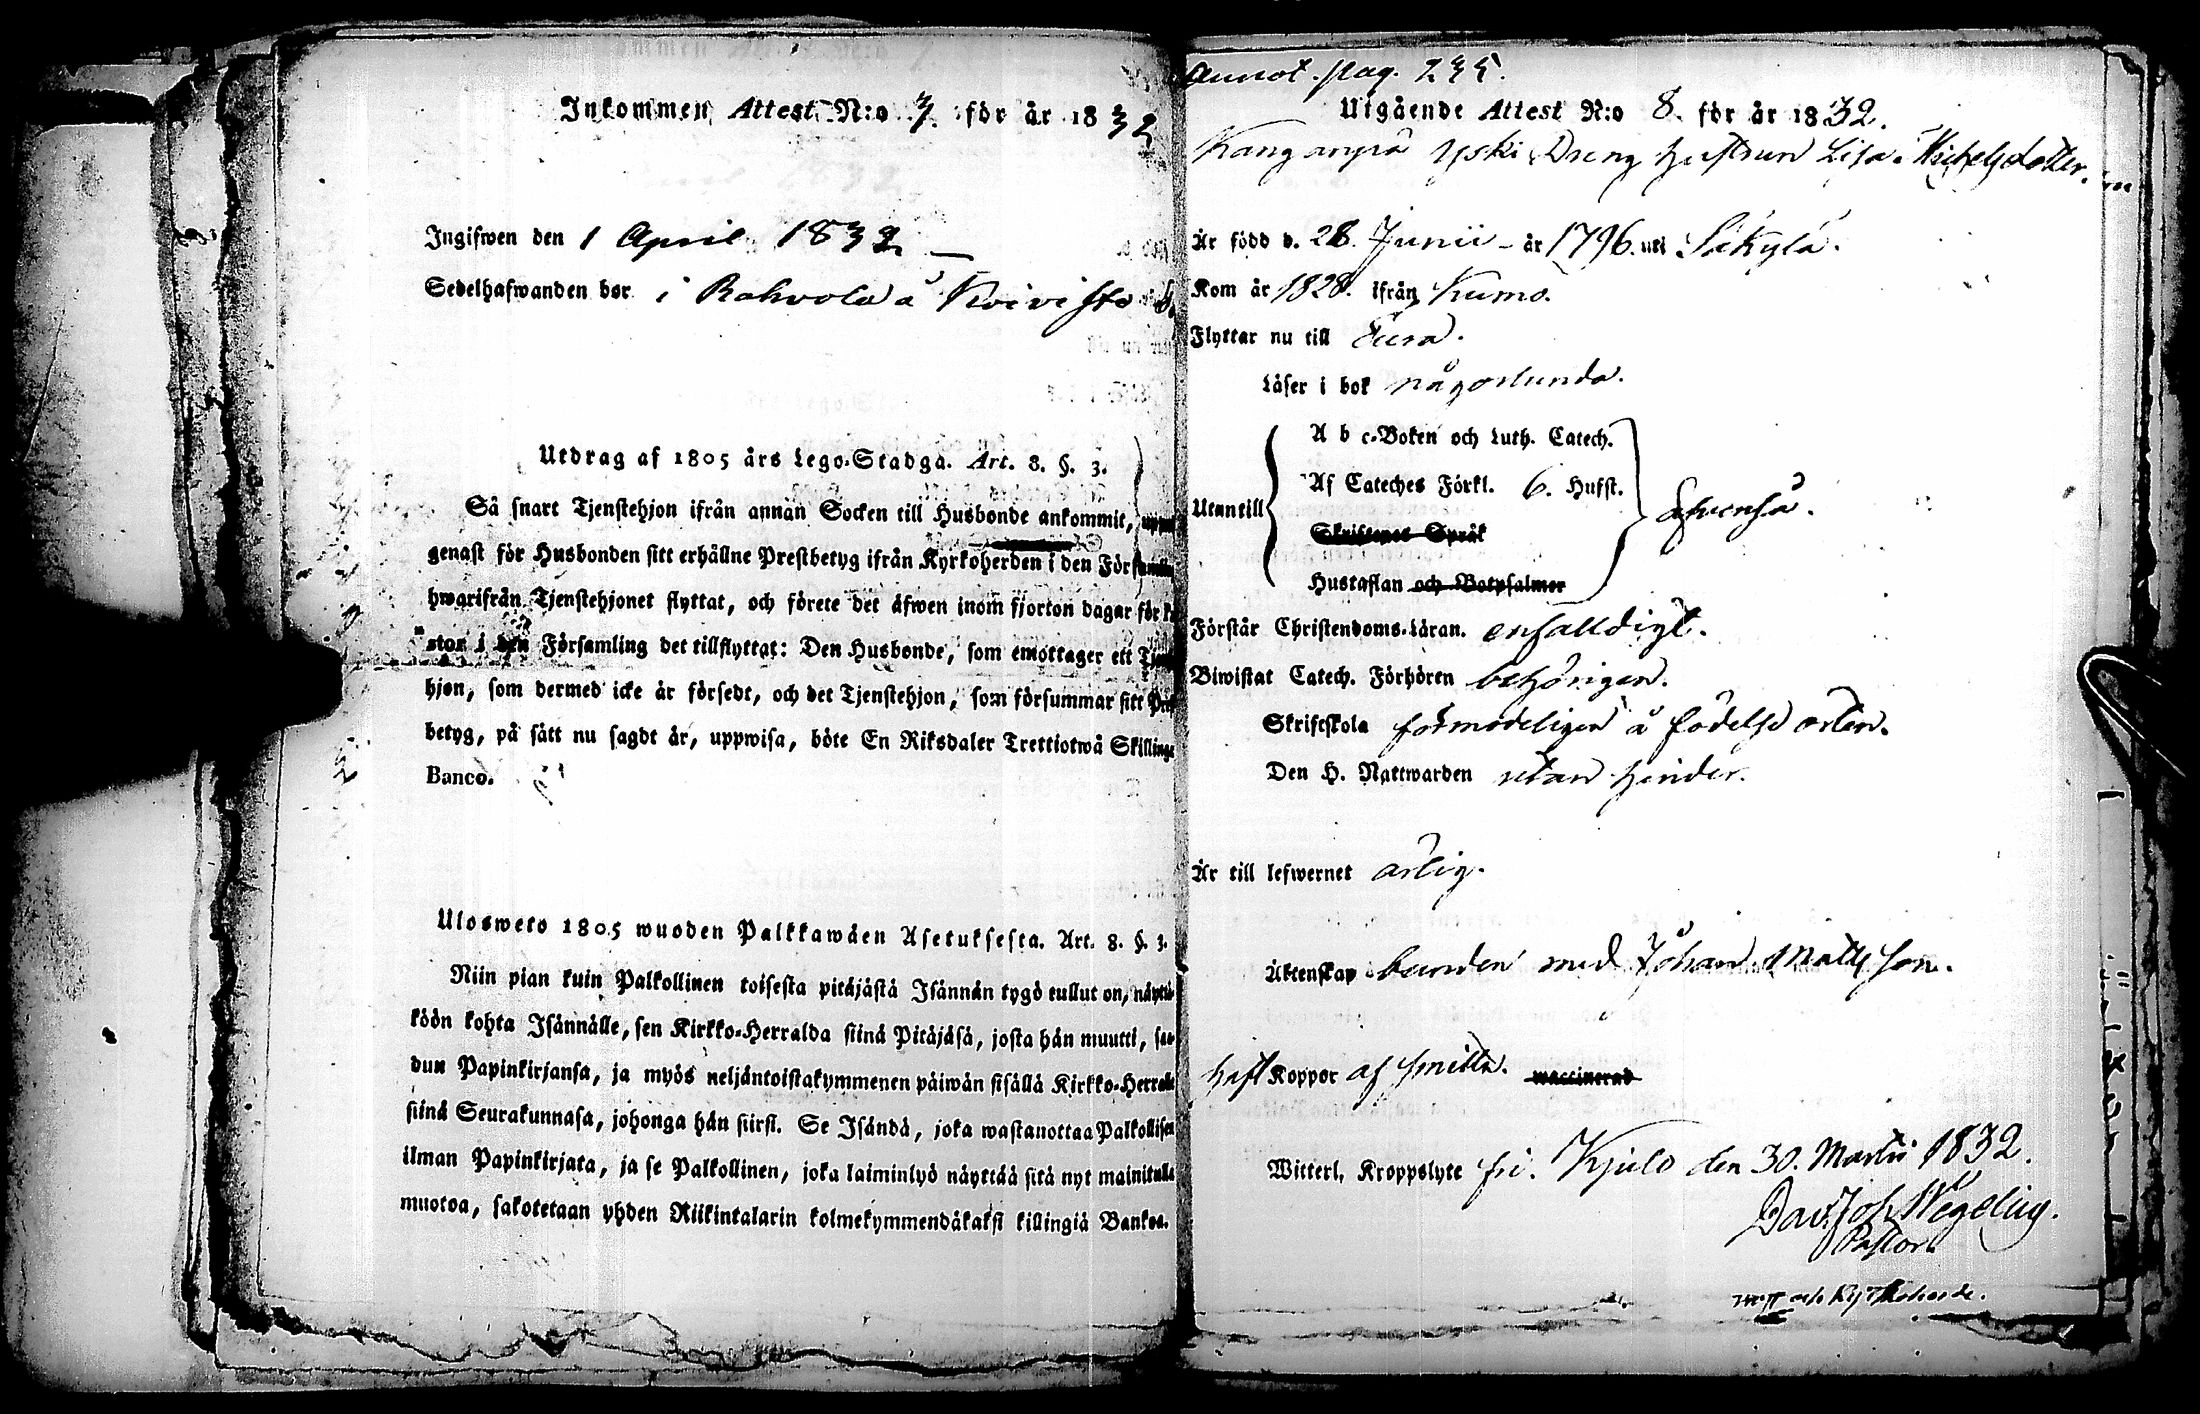 Inkommen Attest N:o 7. för år 1832
Ingifwen den 1 April 1832
Sedelhafwanden bor i Rahvola å Koivisto
Utdrag af 1805 års Lego-Stadga. Art. 8. §. 3.
Så snart Tjenstehjon ifrån annan Socken till Husbonde ankommit,
genast för Husbonden sitt erhållne Prestbetyg ifrån Kyrkoherden i den
hwarifrån Tjenstehjonet flyttat, och förete det äfwen inom fjorton dagar för
stor i den Församling det tillflyttat: Den Husbonde, som emottager ett
hjon, som dermed icke är försedt, och det Tjenstehjon, som försummar sitt
betyg, på sätt nu sagdt är, uppwisa, böte En Riksdaler Trettiotwå Skillingar
Banco.
Ulosweto 1805 wuoden Palkkawäen Asetuksesta. Art. 8. §. 3.
Niin pian kuin Palkollinen toisesta pitäjästä Isännän tygö tullut on, näyttä-
köön kohta Isännälle, sen Kirkko-Herralda siinä Pitäjäsä, josta hän muutti, saa-
dun Papinkirjansa, ja myös neljäntoistakymmenen päiwän sisällä Kirkko-Herralle
siinä Seurakunnasa, johonga hän siirsi. Se Isändä, joka wastanottaa Palkollisen
ilman Papinkirjata, ja se Palkollinen, joka laiminlyö näyttää sitä nyt mainitulla
muotoa, sakotetaan yhden Riikintalarin kolmekymmendäkaksi killingiä Bankoa.
Annot. pag. 235.
Utgående Attest N:o 8. för år 1832.
Yski Dreng hustrun Lisa Michelsdotter.
Är född d. 28. Junii år 1796. uti Säkylä.
Kom år 1828. ifrån Kumo.
Flyttar nu till Eura.
Läser i bok någorlunda.
A b c-Boken och Luth. Catech.
Af Cateches Förkl. 6. Hufst.
Utantill
Skriftenes Språk
Hustaflan och Botpsalmer
Förstår Christendoms-Läran. enfalldigt.
Biwistat Catech. Förhören behörigen.
Skriftskola förmodeligen å födelse orten.
Den H. Nattwarden utan hinder.
Är till lefwernet ärlig.
Äktenskap bunden med Johan Mattsson.
haft Koppor af smitta. waccinerad
Witterl, Kroppslyte fri. Kjulo den 30. Martii 1832.
Dav. Joh. Wegelius.
Pastor.